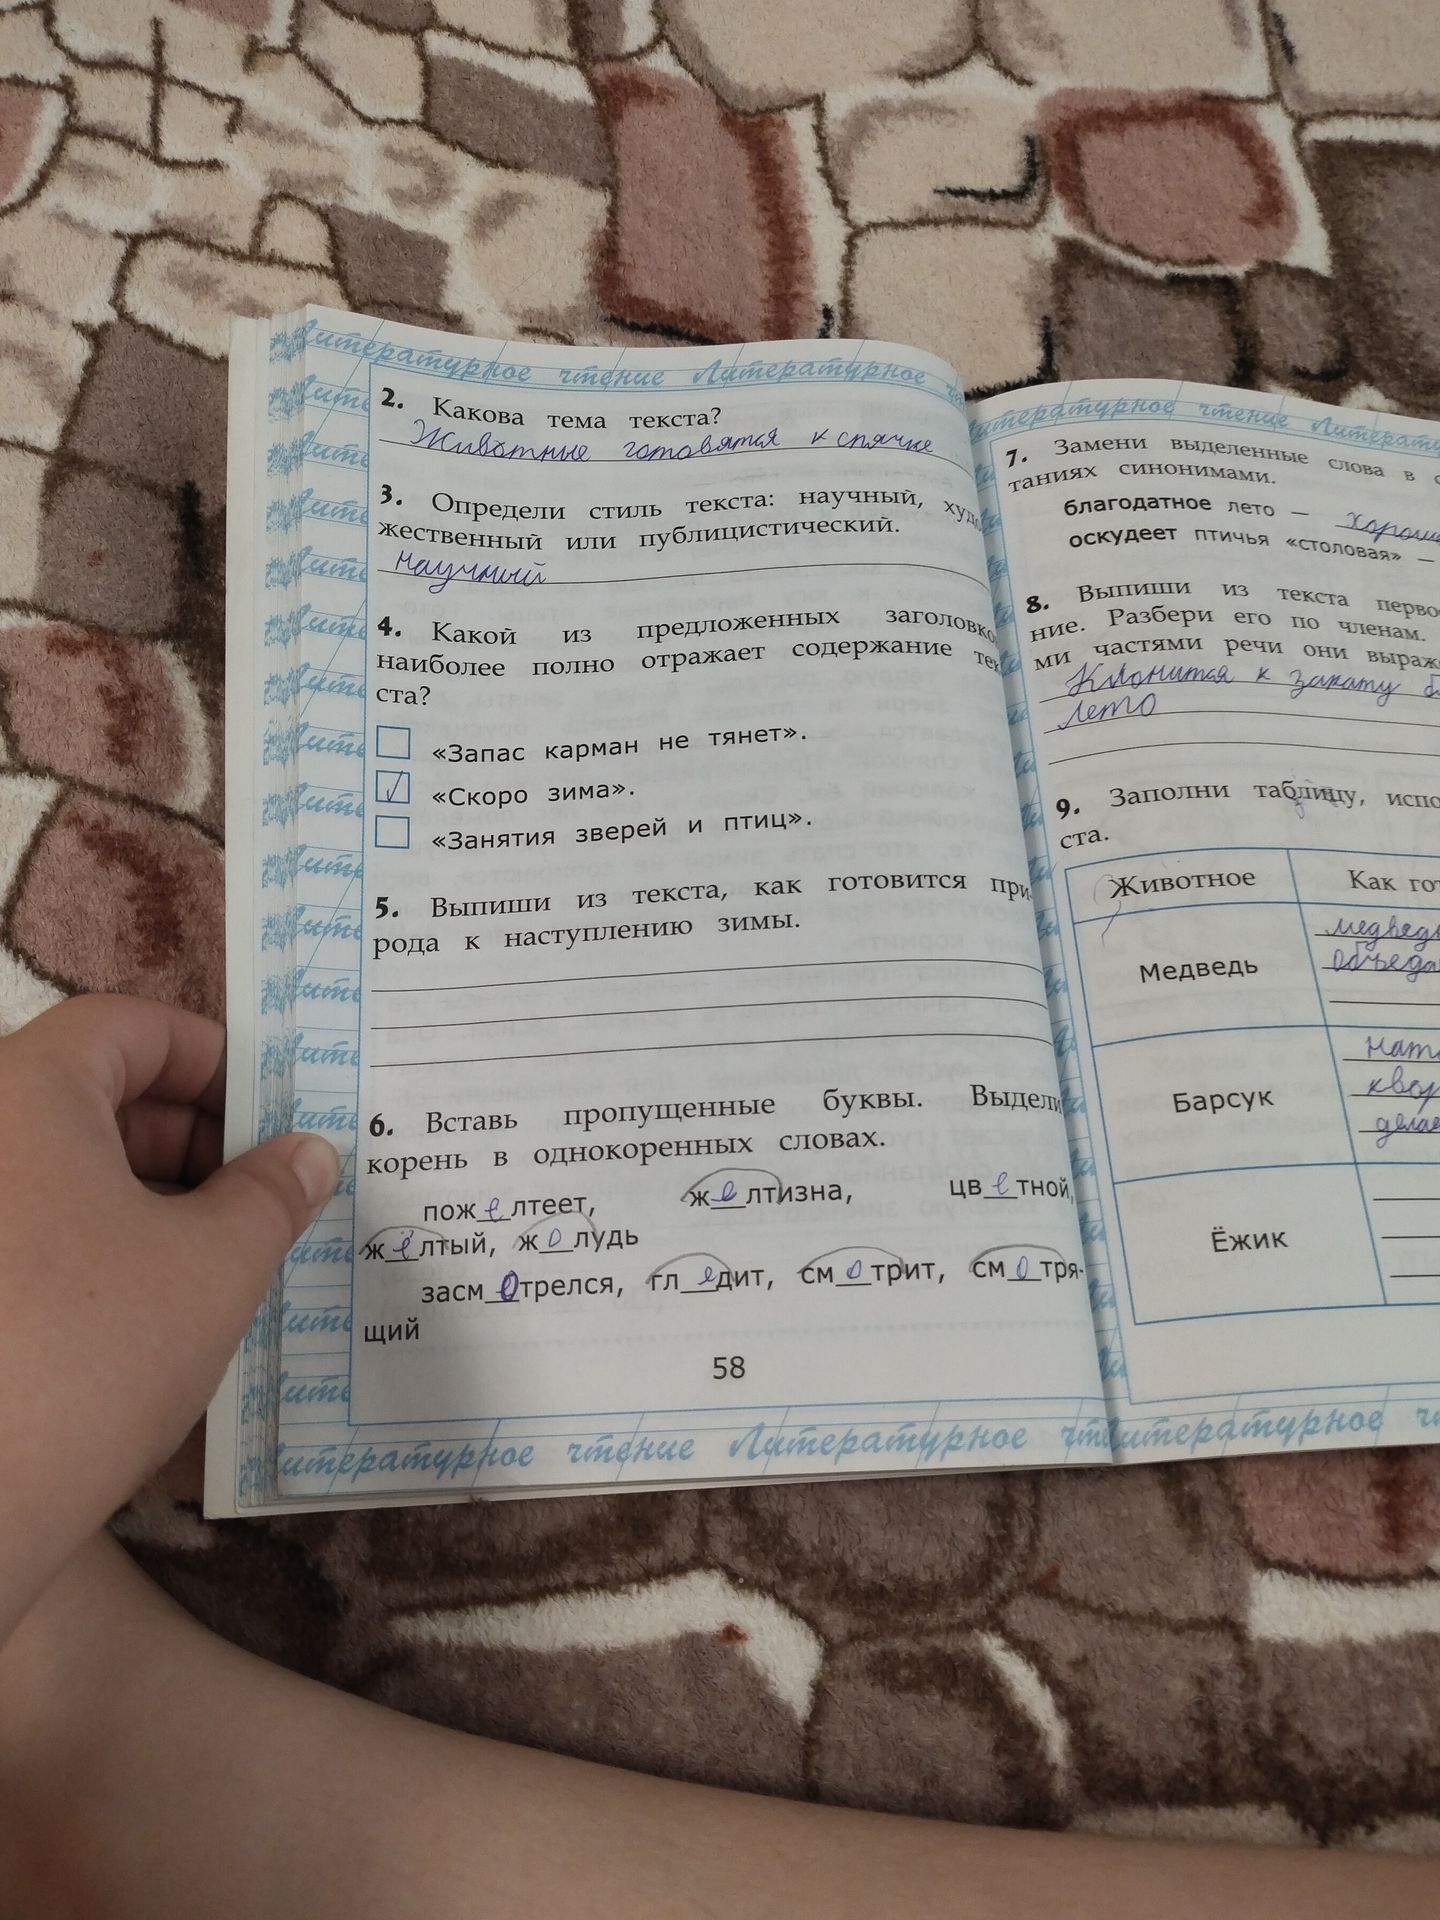 Литературное чтение Литературное
2. Какова тема текста?
Животные готовятся к спячке
3. Определи стиль текста: научный, худо
жественный или публицистический.
научный
4. Какой из предложенных заголовко
наиболее полно отражает содержание тек
ста?
«Запас карман не тянет».
«Скоро зима».
«Занятия зверей и птиц».
5. Выпиши из текста, как готовится при-
рода к наступлению зимы.
6. Вставь пропущенные буквы. Выдели
корень в однокоренных словах.
пожелтеет, желтизна, цветной,
жёлтый, жолудь
засмотрелся, гледит, смотрит, смотря-
щий
58
Литературное чтение Литературное
Литературное чтение
7. Замени выделенные слова в с
таниях синонимами.
благодатное лето — хорош
оскудеет птичья «столовая» —
8. Выпиши из текста перво
ние. Разбери его по членам.
ми частями речи они выраж
Клонится к закату б
лето
9. Заполни таблицу, испо
ста.
Животное Как гот
Медведь
медведь
объеда
Барсук
ната
квор
делае
Ёжик
Литературное